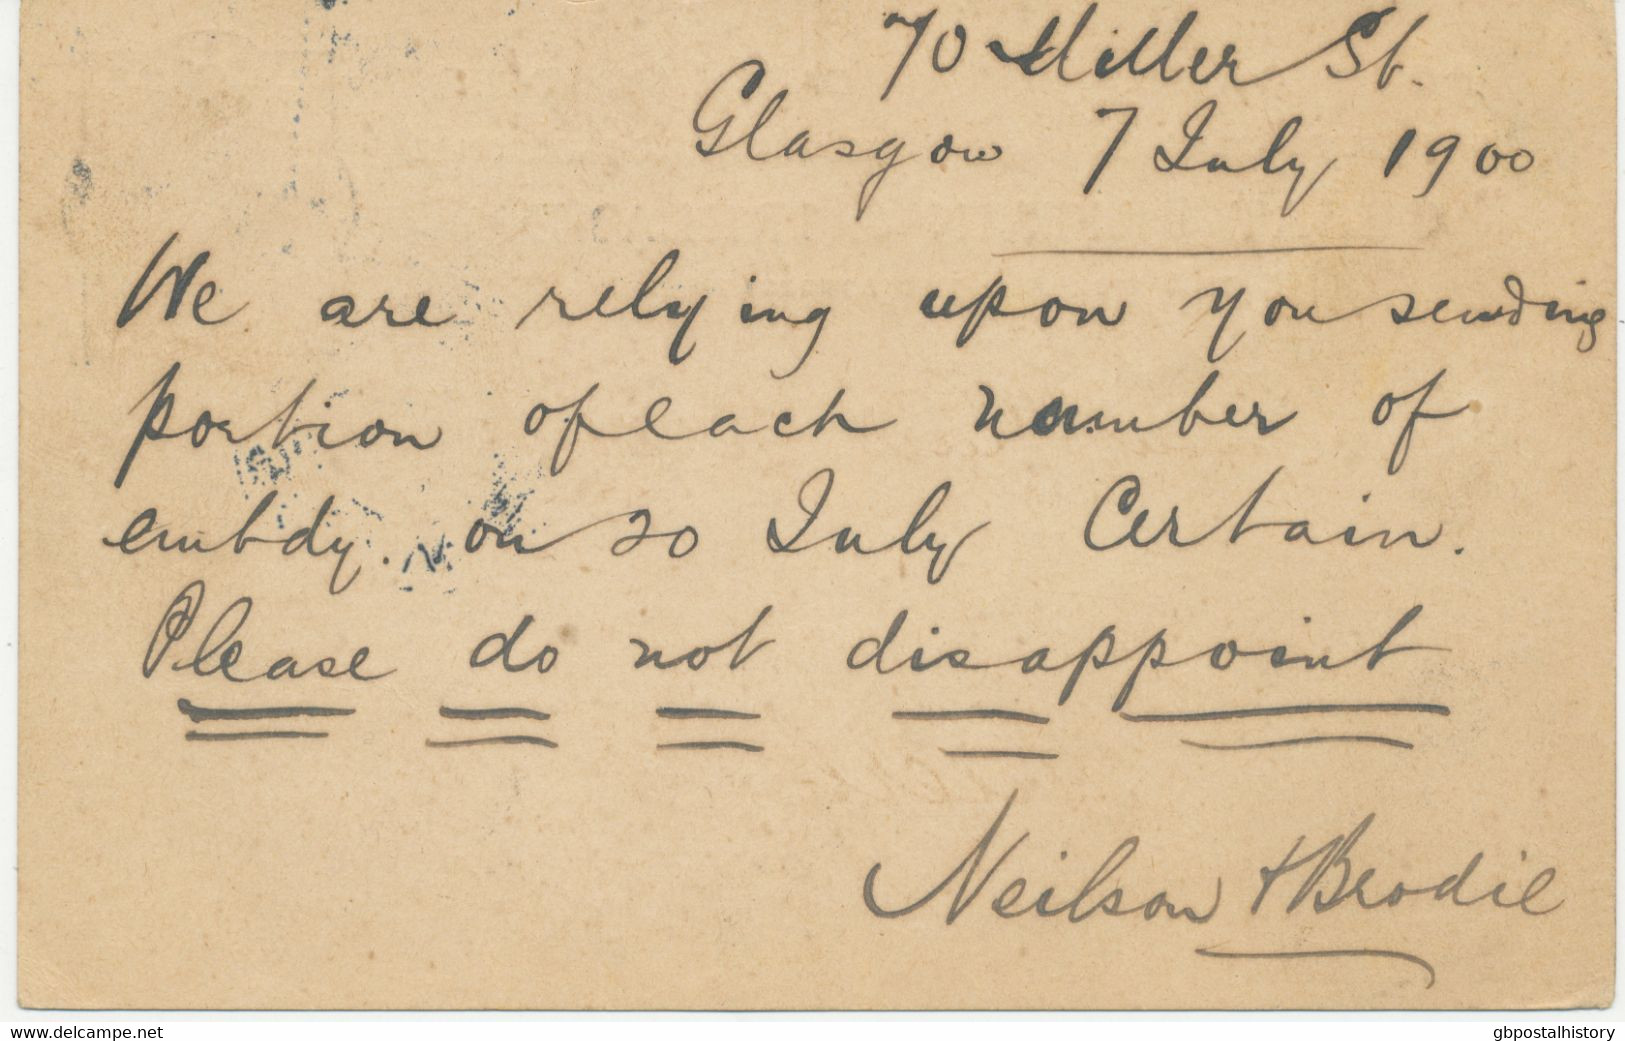 70 Miller St.
Glasgow 7 July 1900
We are relying upon you sending
portion of each number of
embdy. on 20 July Certain.
Please do not disappoint
Neilson & Brodie
www.delcampe.net
gbpostalhistory